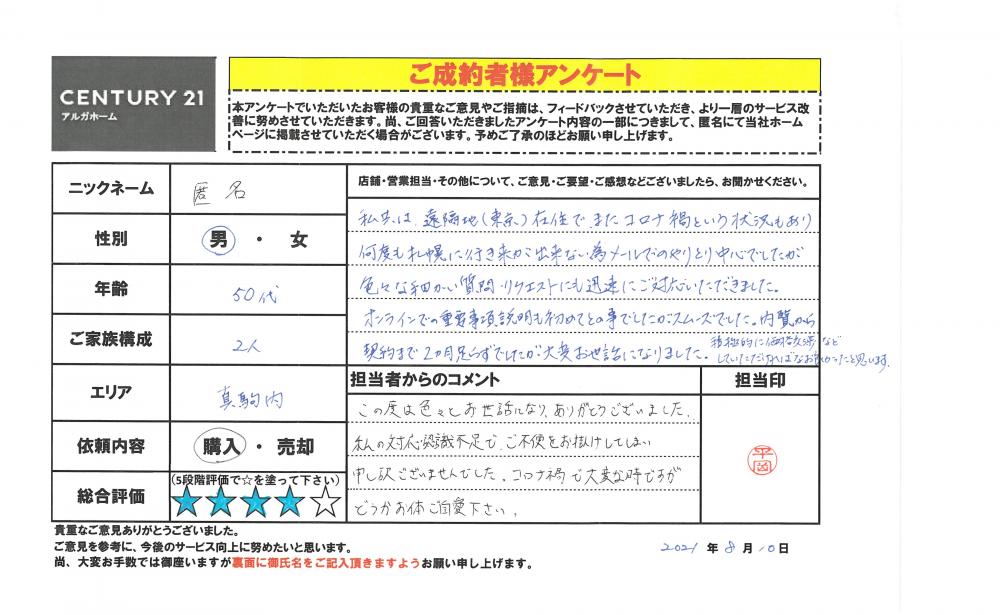 CENTURY 21
アルガホーム
ご成約者様アンケート
本アンケートでいただいたお客様の貴重なご意見やご指摘は、フィードバックさせていただき、より一層のサービス改
善に努めさせていただきます。尚、ご回答いただきましたアンケート内容の一部につきまして、匿名にて当社ホーム
ページに掲載させていただく場合がございます。予めご了承のほどお願い申し上げます。
ニックネーム 匿名
性別 男 ・ 女
年齢 50代
ご家族構成 2人
エリア 真駒内
依頼内容 購入 ・ 売却
総合評価 (5段階評価で☆を塗って下さい)
★★★★☆
店舗・営業担当・その他について、ご意見・ご要望・ご感想などございましたら、お聞かせください。
私共は、遠隔地(東京)在住で、またコロナ禍という状況もあり
何度も札幌に行き来が出来ない為メールでのやりとり中心でしたが
色々な細かい質問・リクエストにも迅速にご対応いただきました。
オンラインでの重要事項説明も初めてとの事でしたがスムーズでした。内覧から
契約まで2カ月足らずでしたが大変お世話になりました。
積極的に価格交渉など
していただければなお良かったと思います。
担当者からのコメント
この度は色々とお世話になり、ありがとうございました。
私の対応、認識不足で、ご不便をお掛けしてしまい
申し訳ございませんでした。コロナ禍で大変な時ですが
どうかお体ご自愛下さい。
担当印
平岡
貴重なご意見ありがとうございました。
ご意見を参考に、今後のサービス向上に努めたいと思います。
尚、大変お手数では御座いますが裏面に御氏名をご記入頂きますようお願い申し上げます。
2021 年 8 月 10 日